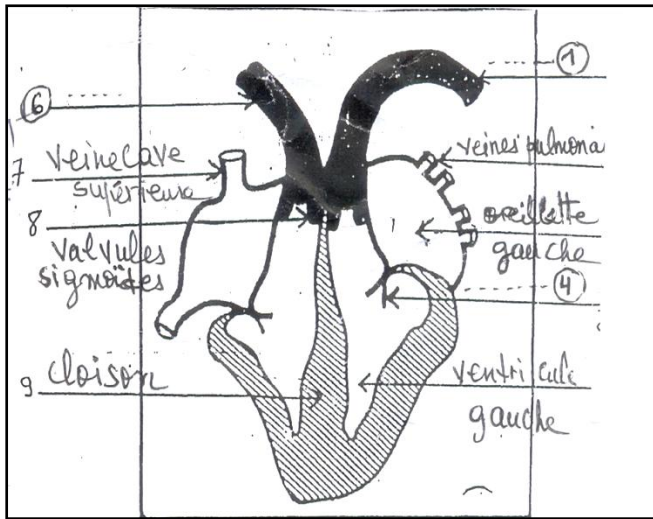 6
1
7 veine cave
supérieure
veines pulmona
8
valvules
sigmoïdes
oreillette
gauche
4
9 cloison
ventricule
gauche